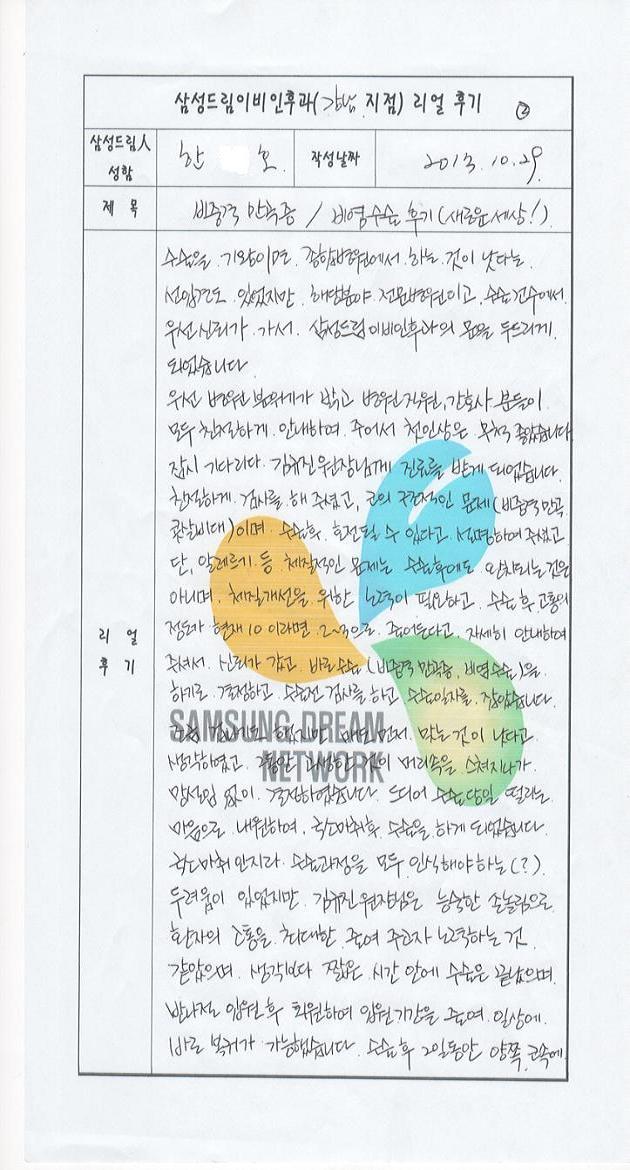 삼성드림이비인후과(강남 지점) 리얼 후기 ②
삼성드림人 성함
한 호
작성날짜
2013. 10. 29
제 목
비중격 만곡증 / 비염수술 후기 (새로운 세상!)
리 얼 후 기
수술을 기왕이면 종합병원에서 하는 것이 낫다는
선입견도 있었지만 해당분야 전문병원이고, 수술건수에서
우선신뢰가 가서 삼성드림이비인후과의 문을 두드리게
되었습니다
우선 병원 분위기가 밝고 병원직원, 간호사 분들이
모두 친절하게 안내하여 주어서 첫인상은 무척 좋았습니다
잠시 기다리다 김유진원장님께 진료를 받게 되었습니다
친절하게 검사를 해 주셨고, 코의 구조적인 문제(비중격만곡,
콧살비대)이며 수술후 호전될 수 있다고 설명하여주셨고
단, 알레르기 등 체질적인 문제는 수술후에도 완치되는것은
아니며, 체질개선을 위한 노력이 필요하고, 수술후 고통의
정도가 현재 10 이라면 2~3으로 줄어든다고, 자세히 안내하여
주셔서 신뢰가 갔고 바로수술 (비중격만곡증, 비염수술)을
하기로 결정하고 수술전 검사를 하고 수술일자를 잡았습니다
했지만 매도 먼저 맞는 것이 낫다고
생각하였고 그동안 고생한 것이 머리속을 스쳐지나가
망설임 없이 결정하였습니다 드디어 수술당일 떨리는
마음으로 내원하여, 국소마취후 수술을 하게 되었습니다
국소마취인지라 수술과정을 모두 인식해야하는(?)
두려움이 있었지만 김유진원장님은 능숙한 손놀림으로
환자의 고통을 최대한 줄여 주고자 노력하는 것
같았으며 생각보다 짧은 시간 안에 수술은 끝났으며
반나절 입원후 퇴원하여 입원기간을 줄여 일상에
바로 복귀가 가능했습니다 수술후 2일동안 양쪽 코속에
SAMSUNG DREAM
NETWORK